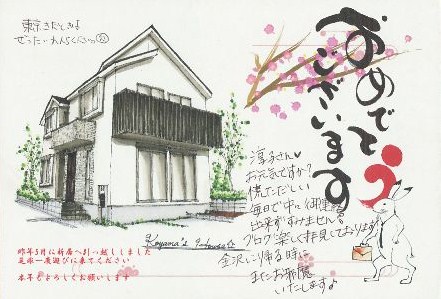 東京
おめでとう
ございます
淳子さん♥
お元気ですか?
慌ただしい
毎日で中々御連絡
出来ずすみません。
ブログ楽しく拝見しております。
金沢に帰る時に
またお邪魔
いたします♪
Koyama's
昨年5月に新居へ引っ越ししました
是非一度遊びに来てください
本年もよろしくお願いします